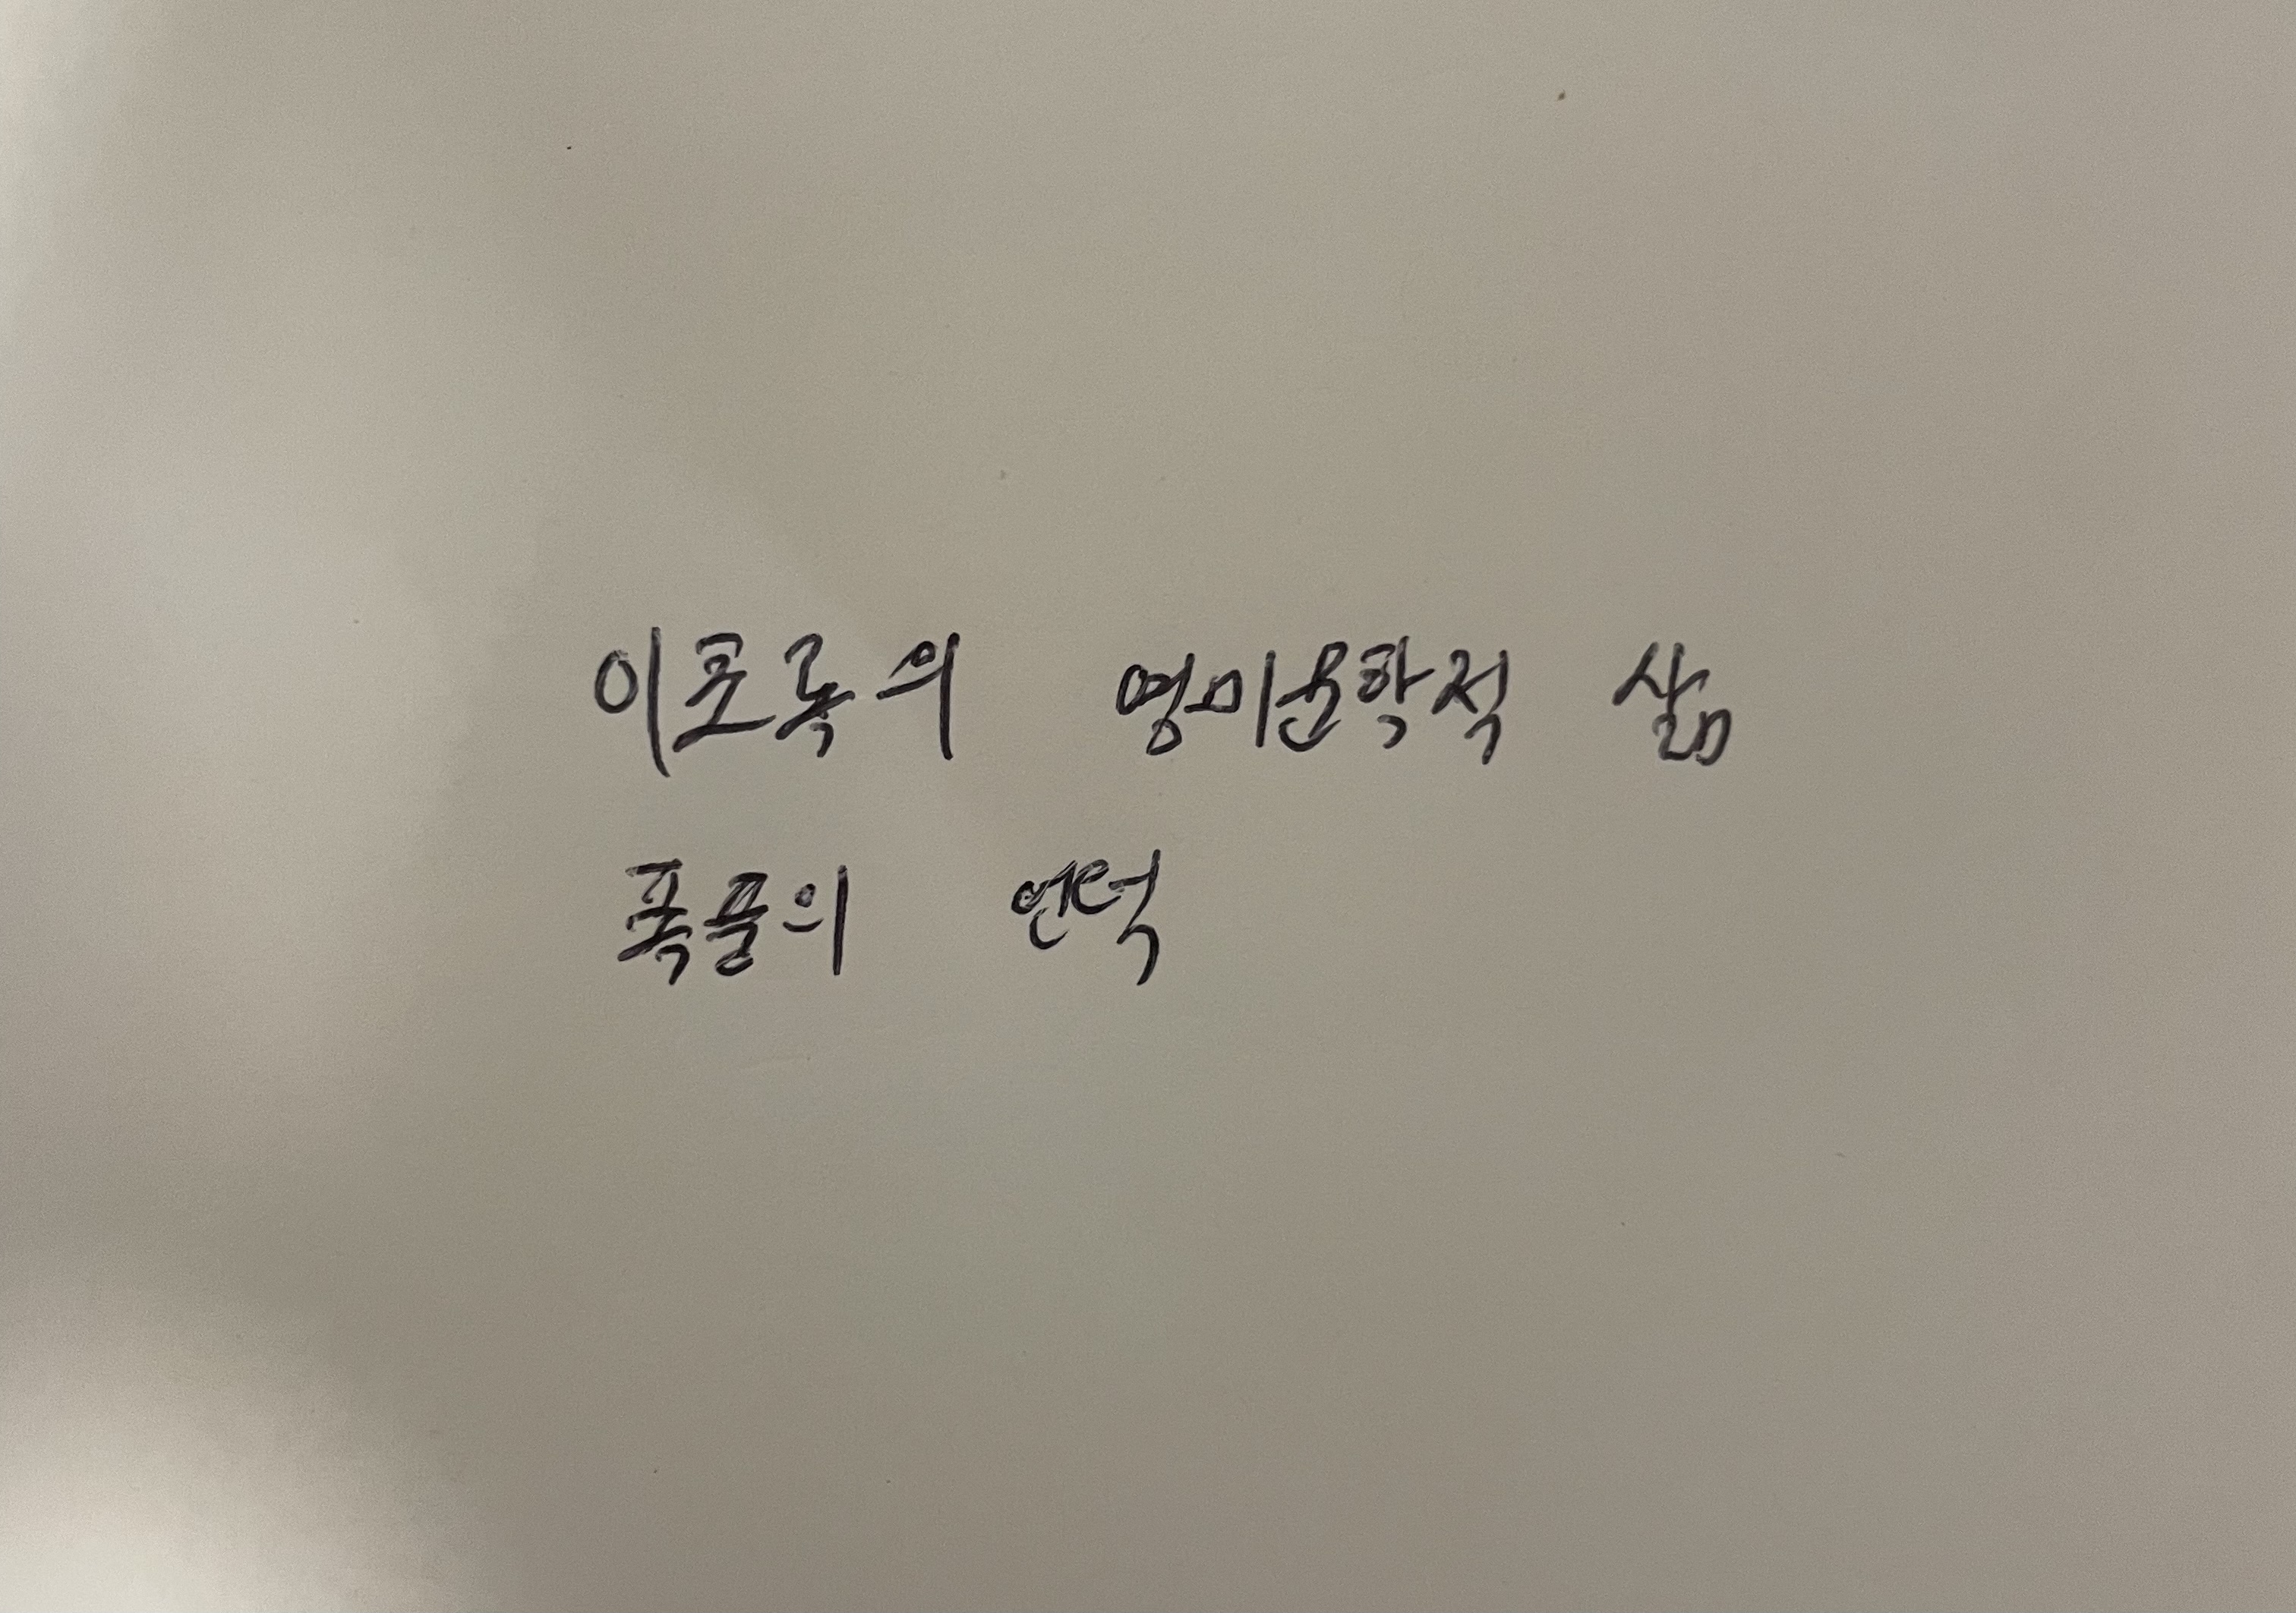 이초록의 영미문학적 삶
폭풍의 언덕